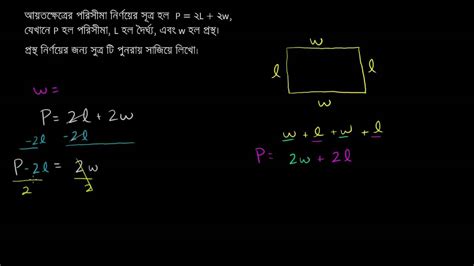 আয়তক্ষেত্রের পরিসীমা নির্ণয়ের সূত্র হল P = ২L + ২w,
যেখানে P হল পরিসীমা, L হল দৈর্ঘ্য, এবং w হল প্রস্থ।
প্রস্থ নির্ণয়ের জন্য সুত্র টি পুনরায় সাজিয়ে লিখো।
w
l l
w
w =
P = 2l + 2w
-2l -2l
P - 2l = 2w
2 2
w + l + w + l
P = 2w + 2l